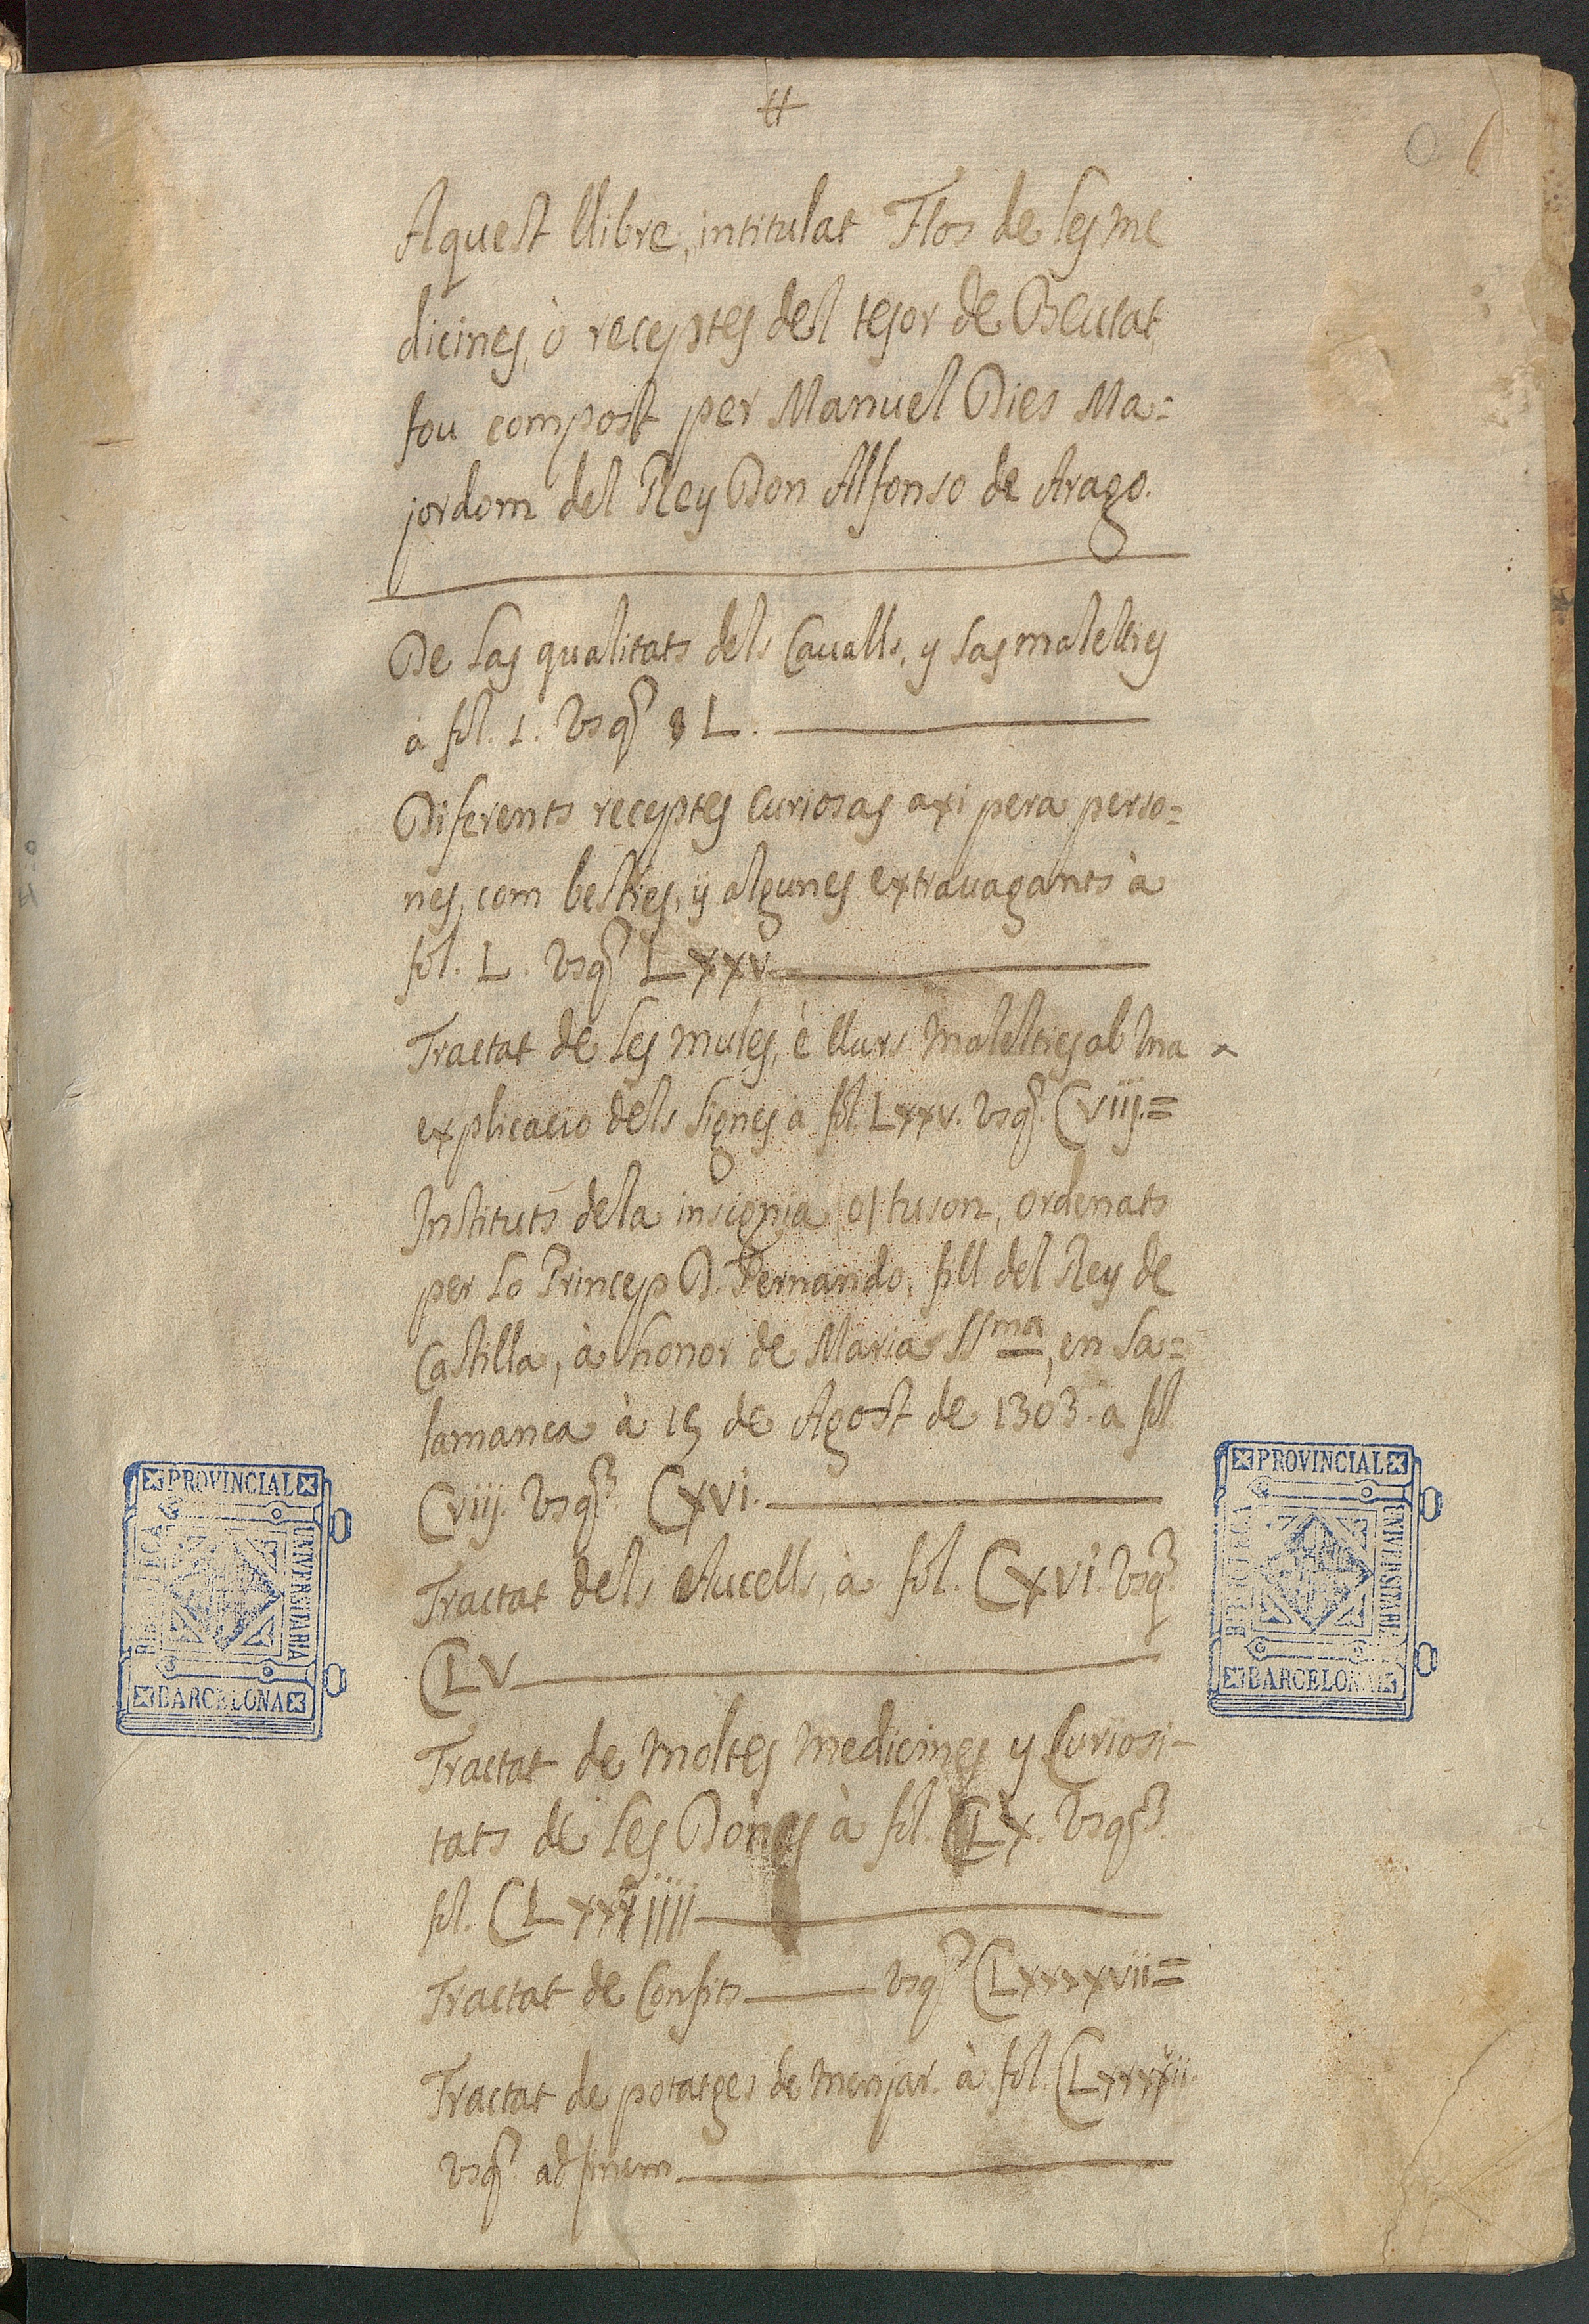 Aquest llibre, intitulat Flos de les me
dicines, ò receptes del tesor de Beutat,
fou compost per Manuel Dies Ma=
jordom del Rey Don Alfonso de Arago.
De las qualitats dels Cavalls, y las malelties
à fol. 1. Vsq. L.
Diferents receptes curiosas axi pera perso=
nes, com besties, y algunes extrauagants à
fol. L. vsq. Lxxv
Tractat de les mules, è llurs malelties ab vna
explicacio dels signes à fol. Lxxv. vsq. Cviij.=
Instituts dela insignia o/ tuson, ordenats
per lo Princep D. Fernando, fill del Rey de
Castilla, à honor de Maria SSma, en Sa=
lamanca à 15 de Agost de 1303. à fol.
Cviij. Vsq. Cxvi.
Tractat dels Aucells, à fol. Cxvi. vsq.
CLV
Tractat de moltes medicines y Curiosi-
tats de les Dones à fol. CLx. Vsq.
fol. CLxxxiiii
Tractat de Confits vsq. CLxxxxvii=
Tractat de potatges de menjar. à fol. CLxxxxvii.
vsq. ad finem
PROVINCIAL
UNIVERSITARIA
BARCELONA
BIBLIOTECA
PROVINCIAL
UNIVERSITARIA
BARCELONA
BIBLIOTECA